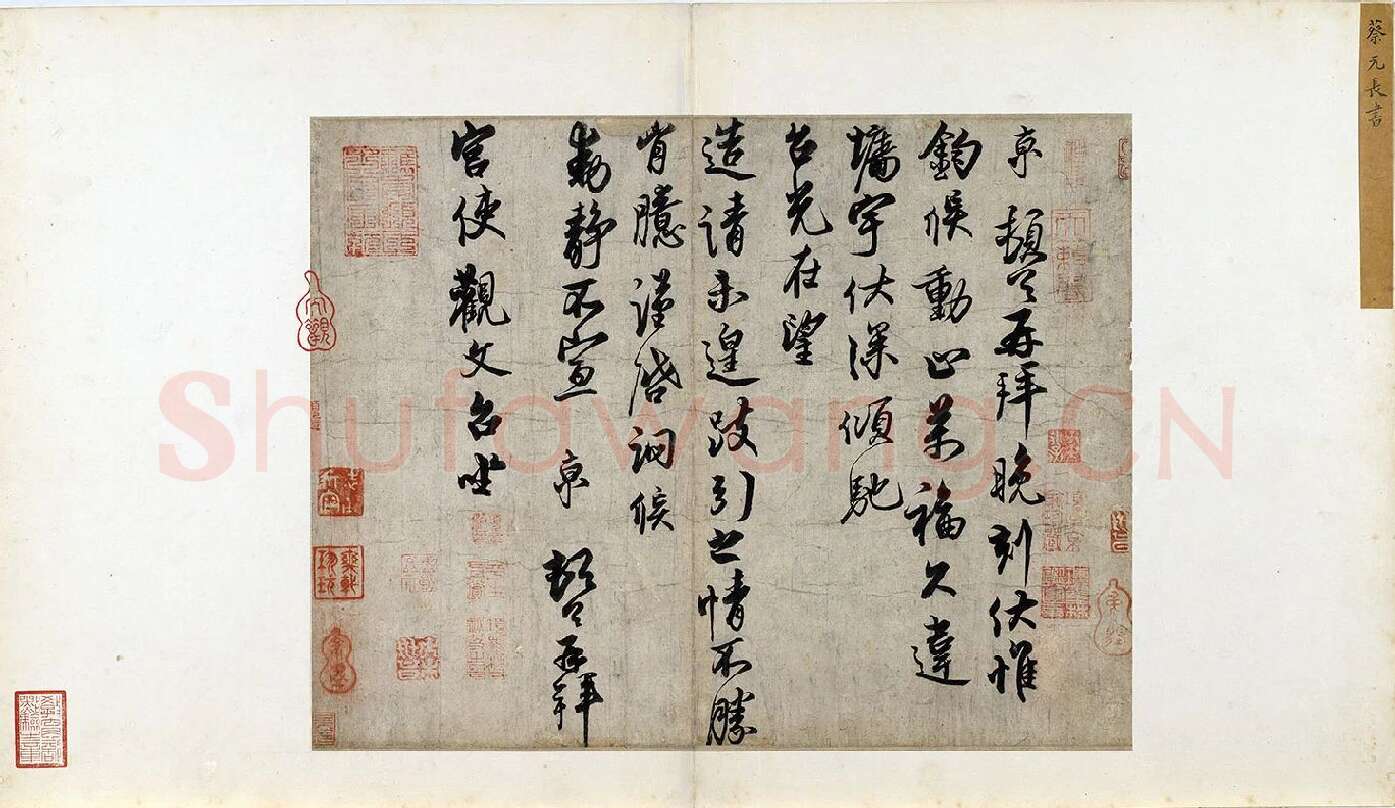 蔡元長書
京頓首再拜晚刻伏惟
鈞候動止萬福久違
墉宇伏深傾馳
台光在望
造請未遑跂引之情不勝
胷臆謹啓詗候
動靜不宣 京 頓首再拜
宮使觀文台坐
大觀
Shufawang.CN